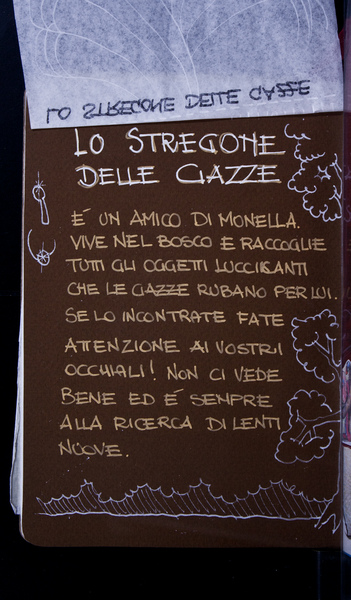 LO STREGONE DELLE GAZZE
LO STREGONE
DELLE GAZZE
E' UN AMICO DI MONELLA.
VIVE NEL BOSCO E RACCOGLIE
TUTTI GLI OGGETTI LUCCICANTI
CHE LE GAZZE RUBANO PER LUI.
SE LO INCONTRATE FATE
ATTENZIONE AI VOSTRI
OCCHIALI! NON CI VEDE
BENE ED E' SEMPRE
ALLA RICERCA DI LENTI
NUOVE.